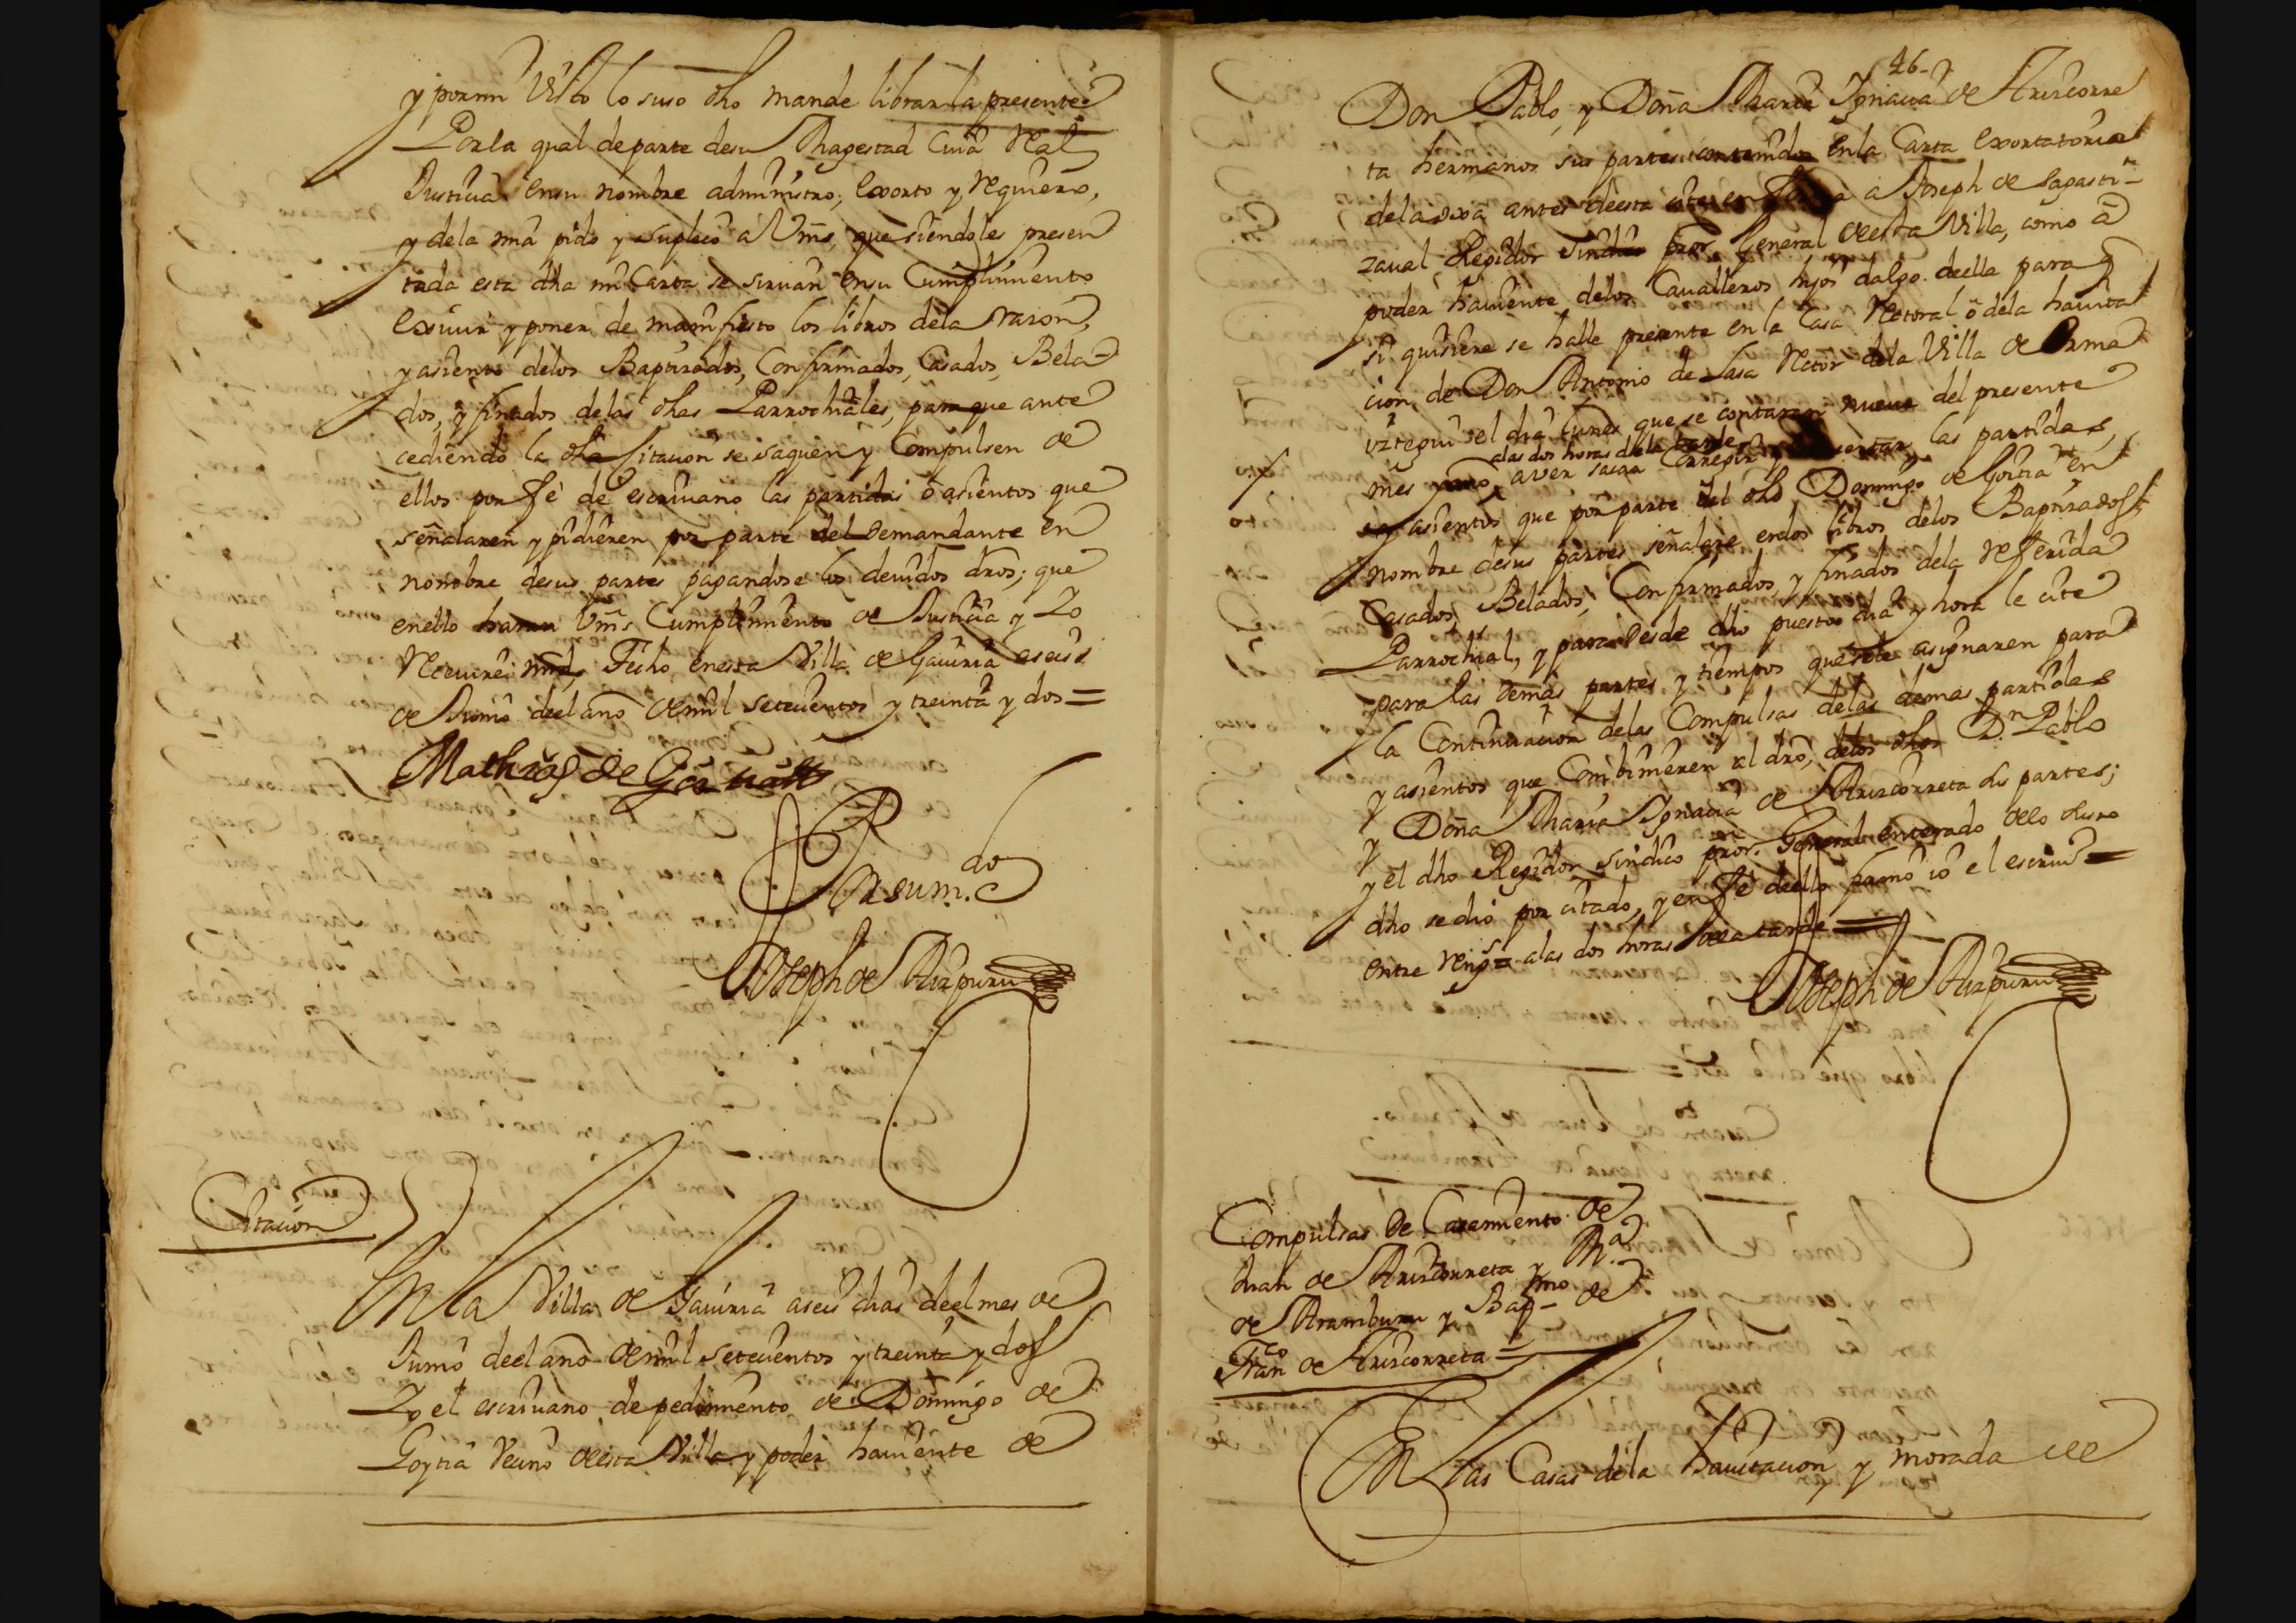 y por mi Visto lo suso dho mande librar la presente
Por la qual de parte de su Magestad Cuia Real
Justicia en su nombre administro, Exorto y requiero,
y de la mia pido y suplico a Vms, que siendoles presen
tada esta dha mi Carta se sirvan en su Cumplimiento
Exivir y poner de manifiesto los libros de la razon,
y asiento delos Baptizados, Confirmados, Casados, Bela
dos, y finados delas dhas Parrochiales, para que ante
cediendo la dha Citacion se saquen y Compulsen de
ellos por fè de escrivano las partidas ò asientos que
señalaren y pidieren por parte del Demandante en
nombre desus partes pagandose los devidos dros; que
en ello haran Vms Cumplimiento de Justicia y Yo
Recivire mrd, Fecho en esta Villa de Gaviria a seis
de Junio deel año de mil setecientos y treinta y dos =
Mathias de
Por su m.do
Joseph de Aizpuru
Citacion
En la Villa de Gaviria a seis dias deel mes de
Junio deel año de mil setecientos y treinta y dos
Yo el escrivano de pedimento de Domingo de
Goytia Vecino de esta Villa y poder haviente de
46-
Don Pablo, y Doña Maria Ignacia de Arizcorre
ta hermanos sus partes contenidos en la Carta exortatoria
dela oxa antes de esta cite en a Joseph de Sagasti-
zaval Regidor sindico pror. General de esta Villa, como â
poder haviente delos Cavalleros hijos dalgo de ella para q
si quisiere se halle presente en la Casa Retoral ô dela havita
cion de Don Antonio de Lasa Retor dela Villa de Orma
iztegui el dia lunes que se contaran nueve del presente
alas dos horas dela tarde
mes y año a ver sacar Corregir y las partidas,
y asientos que por parte del dho Domingo de Goitia en
nombre desus partes señalare en los libros delos Baptizados,
Casados, Belados, Confirmados, y finados dela referida
Parrochial, y para desde dho puesto dia y hora le cite
para las demas partes y tiempos que se le asignaren para
la Continuacion delas Compulsas delas demas partidas
y asientos que Combinieren al dro, delos dhos D.n Pablo
y Doña Maria Ignacia de Arizcorreta sus partes;
y el dho Regidor Sindico pror. General enterado delo suso
dho se dio por citado, y en fè de ello firmè io el escriv.o =
entre reng.s = alas dos horas dela tarde =
Joseph de Aizpuru
Compulsas de Casamiento de
Juan de Arizcorreta y M.a
de Aramburu y Bap.mo de
Fran.co de Arizcorreta =
En las Casas de la havitacion y morada de